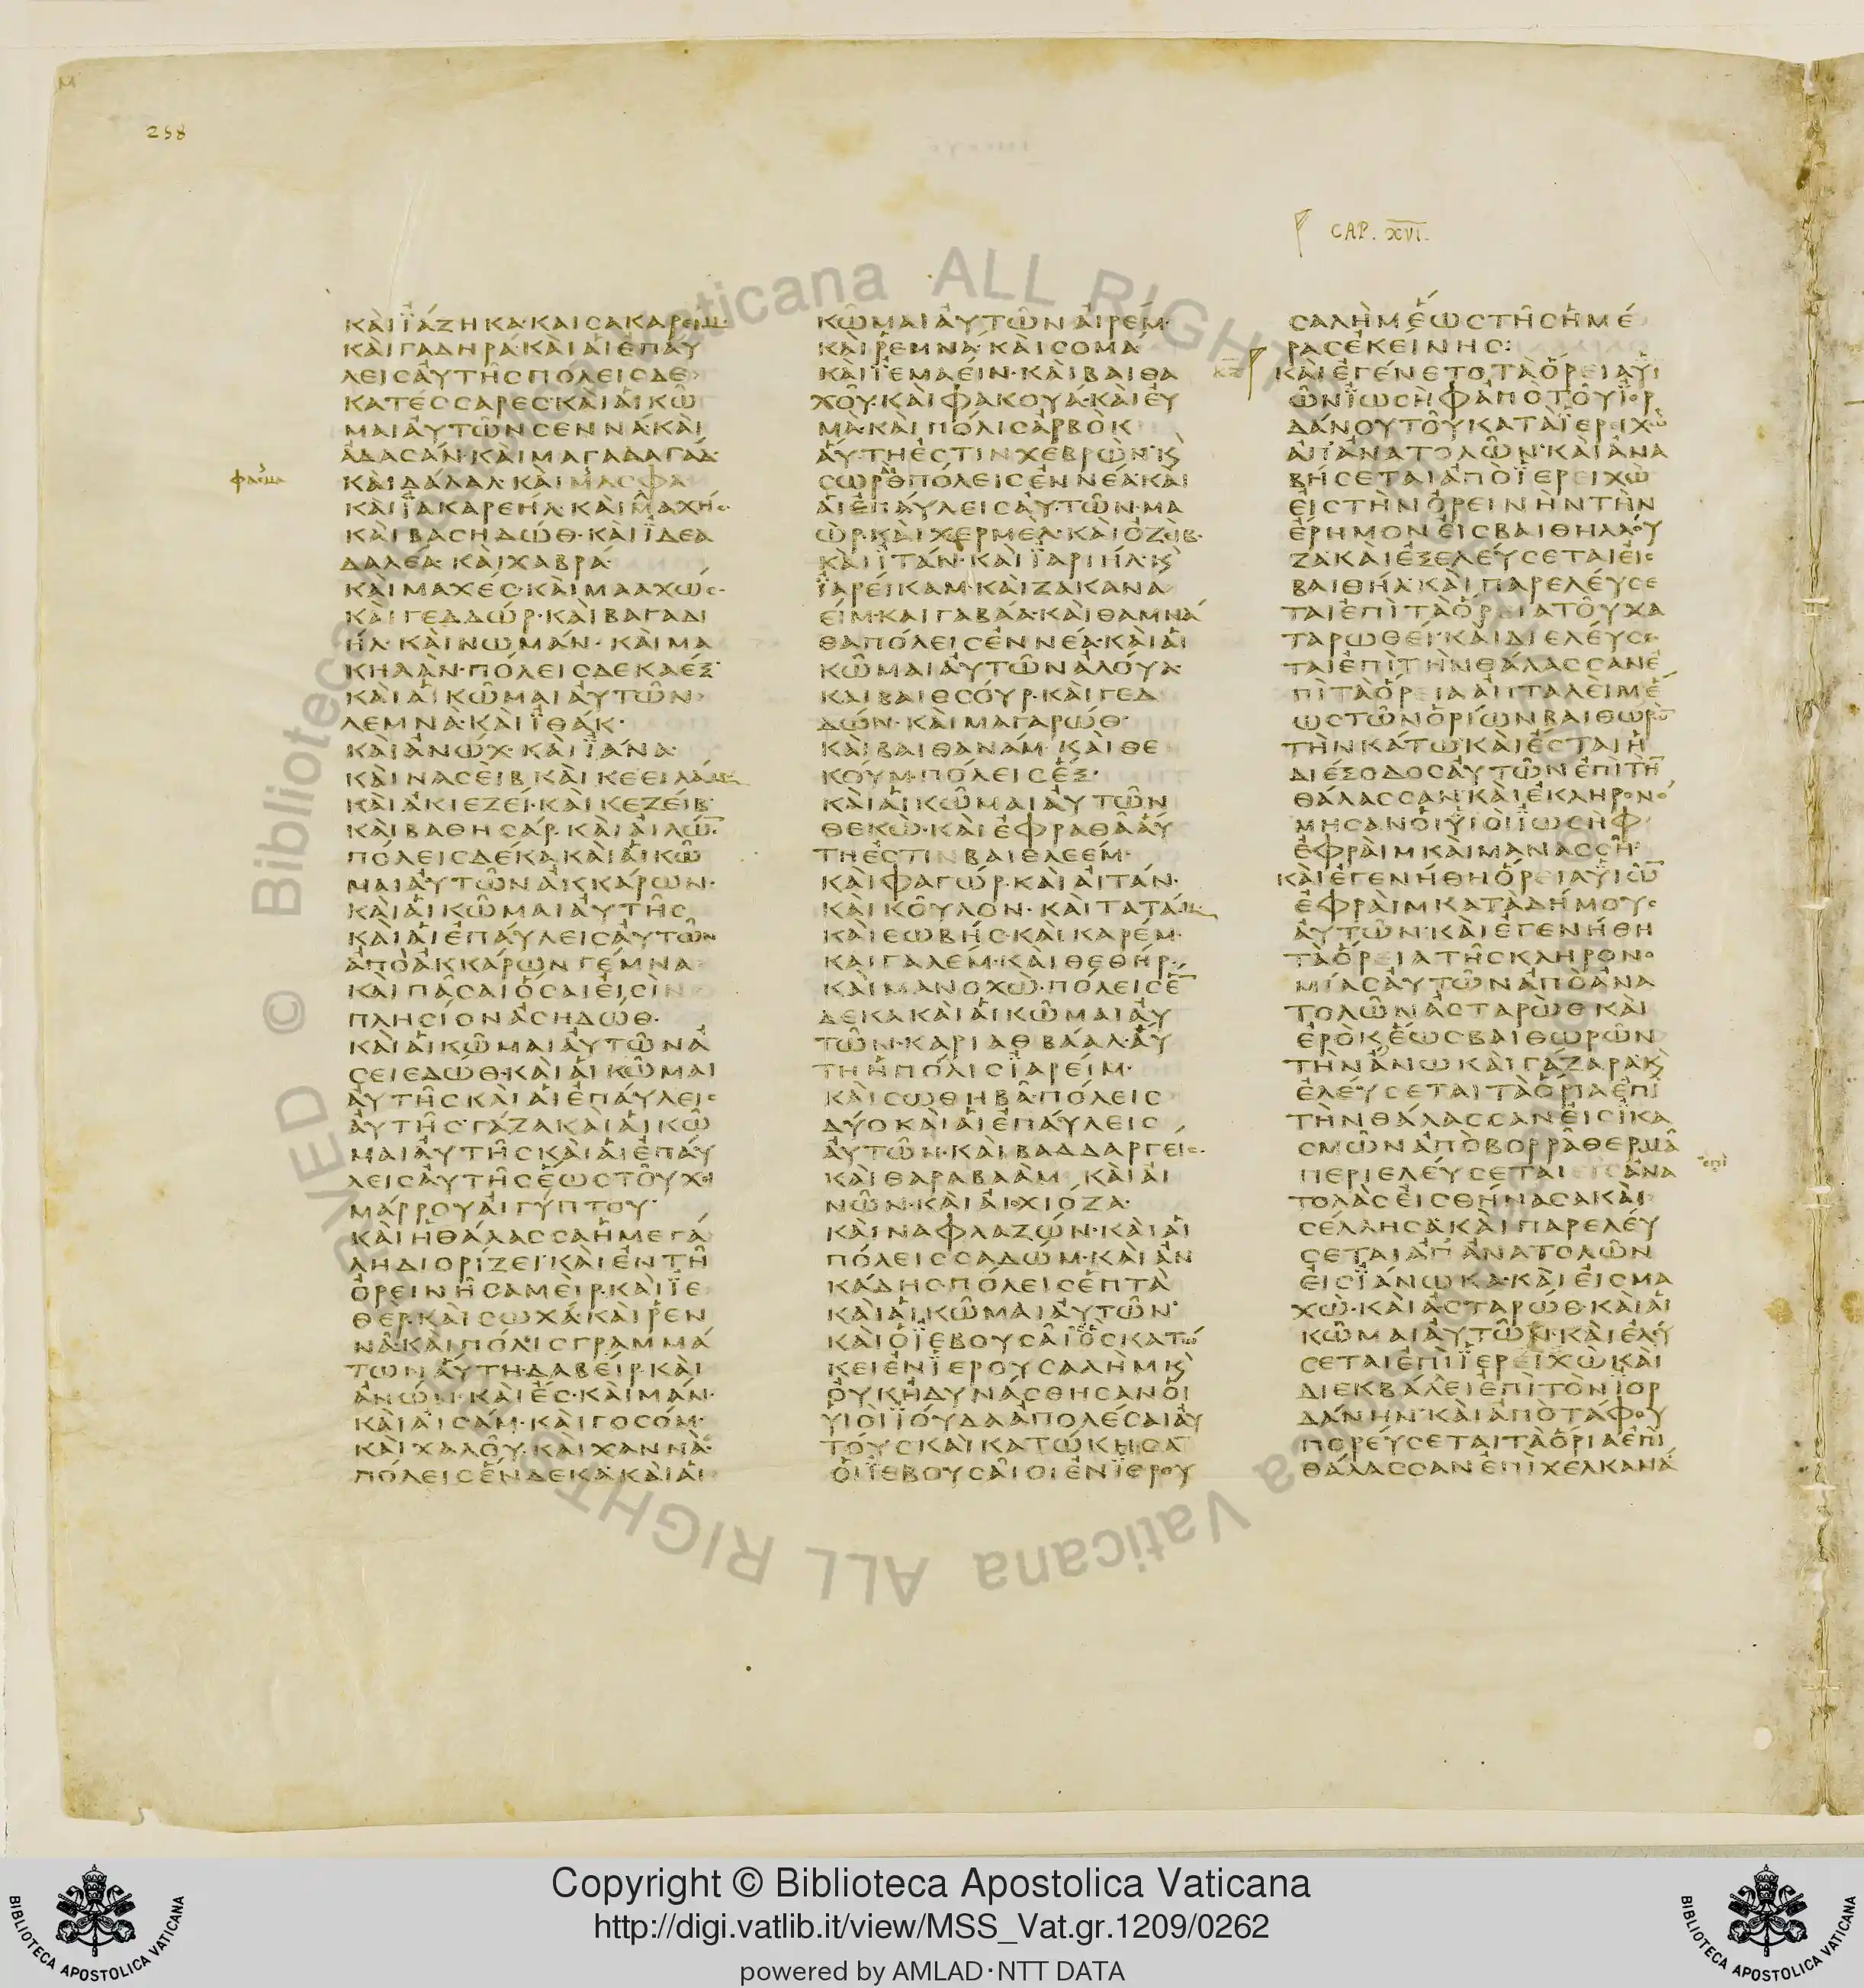 258
CAP. XVI.
ΚΑΙ ΪΑΖΗΚΑ· ΚΑΙ ΣΑΚΑΡΕΙΜ·
ΚΑΙ ΓΑΔΗΡΑ· ΚΑΙ ΑΙ ΕΠΑΥ
ΛΕΙΣ ΑΥΤΗΣ ΠΟΛΕΙΣ ΔΕ
ΚΑΤΕΣΣΑΡΕΣ· ΚΑΙ ΑΙ ΚΩ
ΜΑΙ ΑΥΤΩΝ ΣΕΝΝΑ· ΚΑΙ
ΑΔΑΣΑΝ· ΚΑΙ ΜΑΓΑΔΑΓΑΔ·
ΚΑΙ ΔΑΛΑΛ· ΚΑΙ ΜΑΣΦΑ·
ΚΑΙ ΪΑΚΑΡΕΗΛ· ΚΑΙ ΜΑΧΗΣ·
ΚΑΙ ΒΑΣΗΔΩΘ· ΚΑΙ ΪΔΕΑ
ΔΑΛΕΑ· ΚΑΙ ΧΑΒΡΑ·
ΚΑΙ ΜΑΧΕΣ· ΚΑΙ ΜΑΑΧΩΣ·
ΚΑΙ ΓΕΔΔΩΡ· ΚΑΙ ΒΑΓΑΔΙ
ΗΛ· ΚΑΙ ΝΩΜΑΝ· ΚΑΙ ΜΑ
ΚΗΔΑΝ· ΠΟΛΕΙΣ ΔΕΚΑΕΞ·
ΚΑΙ ΑΙ ΚΩΜΑΙ ΑΥΤΩΝ
ΛΕΜΝΑ· ΚΑΙ ΪΘΑΚ·
ΚΑΙ ΑΝΩΧ· ΚΑΙ ΪΑΝΑ·
ΚΑΙ ΝΑΣΕΙΒ· ΚΑΙ ΚΕΕΙΛΑΜ·
ΚΑΙ ΑΚΙΕΖΕΙ· ΚΑΙ ΚΕΖΕΙΒ·
ΚΑΙ ΒΑΘΗΣΑΡ· ΚΑΙ ΑΙΛΩ̄·
ΠΟΛΕΙΣ ΔΕΚΑ ΚΑΙ ΑΙ ΚΩ
ΜΑΙ ΑΥΤΩΝ ΑΚΚΑΡΩΝ·
ΚΑΙ ΑΙ ΚΩΜΑΙ ΑΥΤΗΣ
ΚΑΙ ΑΙ ΕΠΑΥΛΕΙΣ ΑΥΤΩΝ
ΑΠΟ ΑΚΚΑΡΩΝ ΓΕΜΝΑ
ΚΑΙ ΠΑΣΑΙ ΟΣΑΙ ΕΙΣΙΝ
ΠΛΗΣΙΟΝ ΑΣΗΔΩΘ·
ΚΑΙ ΑΙ ΚΩΜΑΙ ΑΥΤΩΝ Α
ΣΕΙΕΔΩΘ· ΚΑΙ ΑΙ ΚΩΜΑΙ
ΑΥΤΗΣ ΚΑΙ ΑΙ ΕΠΑΥΛΕΙΣ
ΑΥΤΗΣ· ΓΑΖΑ ΚΑΙ ΑΙ ΚΩ
ΜΑΙ ΑΥΤΗΣ ΚΑΙ ΑΙ ΕΠΑΥ
ΛΕΙΣ ΑΥΤΗΣ ΕΩΣ ΤΟΥ ΧΙ
ΜΑΡΡΟΥ ΑΙΓΥΠΤΟΥ·
ΚΑΙ Η ΘΑΛΑΣΣΑ Η ΜΕΓΑ
ΛΗ ΔΙΟΡΙΖΕΙ· ΚΑΙ ΕΝ ΤΗ
ΟΡΕΙΝΗ ΣΑΜΕΙΡ· ΚΑΙ ΪΕ
ΘΕΡ· ΚΑΙ ΣΩΧΑ· ΚΑΙ ΡΕΝ
ΝΑ· ΚΑΙ ΠΟΛΙΣ ΓΡΑΜΜΑ
ΤΩΝ ΑΥΤΗ· ΔΑΒΕΙΡ· ΚΑΙ
ΑΝΩΝ· ΚΑΙ ΕΣ· ΚΑΙ ΜΑΝ·
ΚΑΙ ΑΙΣΑΜ· ΚΑΙ ΓΟΣΟΜ·
ΚΑΙ ΧΑΛΟΥ· ΚΑΙ ΧΑΝΝΑ·
ΠΟΛΕΙΣ ΕΝΔΕΚΑ· ΚΑΙ ΑΙ
ΚΩΜΑΙ ΑΥΤΩΝ ΑΙΡΕΜ·
ΚΑΙ ΡΕΜΝΑ· ΚΑΙ ΣΟΜΑ·
ΚΑΙ ΪΕΜΑΕΙΝ· ΚΑΙ ΒΑΙΘΑ
ΧΟΥ· ΚΑΙ ΦΑΚΟΥΑ· ΚΑΙ ΕΥ
ΜΑ· ΚΑΙ ΠΟΛΙΣ ΑΡΒΟΚ
ΑΥΤΗ ΕΣΤΙΝ ΧΕΒΡΩΝ· Κ̀
ΣΩΡΘ ΠΟΛΕΙΣ ΕΝΝΕΑ· ΚΑΙ
ΑΙ ΕΠΑΥΛΕΙΣ ΑΥΤΩΝ· ΜΑ
ΩΡ· ΚΑΙ ΧΕΡΜΕΛ· ΚΑΙ ΟΖΕΙΒ·
ΚΑΙ ΪΤΑΝ· ΚΑΙ ΪΑΡΙΗΛ· Κ̀
ΪΑΡΕΙΚΑΜ· ΚΑΙ ΖΑΚΑΝΑ
ΕΙΜ· ΚΑΙ ΓΑΒΑΑ· ΚΑΙ ΘΑΜΝΑ
ΘΑ ΠΟΛΕΙΣ ΕΝΝΕΑ· ΚΑΙ ΑΙ
ΚΩΜΑΙ ΑΥΤΩΝ ΑΛΟΥΑ·
ΚΑΙ ΒΑΙΘΣΟΥΡ· ΚΑΙ ΓΕΔ
ΔΩΝ· ΚΑΙ ΜΑΓΑΡΩΘ·
ΚΑΙ ΒΑΙΘΑΝΑΜ· ΚΑΙ ΘΕ
ΚΟΥΜ· ΠΟΛΕΙΣ ΕΞ·
ΚΑΙ ΑΙ ΚΩΜΑΙ ΑΥΤΩΝ
ΘΕΚΩ· ΚΑΙ ΕΦΡΑΘΑ ΑΥ
ΤΗ ΕΣΤΙΝ ΒΑΙΘΛΕΕΜ·
ΚΑΙ ΦΑΓΩΡ· ΚΑΙ ΑΙΤΑΝ·
ΚΑΙ ΚΟΥΛΟΝ· ΚΑΙ ΤΑΤΑΜ·
ΚΑΙ ΕΩΒΗΣ· ΚΑΙ ΚΑΡΕΜ·
ΚΑΙ ΓΑΛΕΜ· ΚΑΙ ΘΕΘΗΡ·
ΚΑΙ ΜΑΝΟΧΩ· ΠΟΛΕΙΣ Ε̄
ΔΕΚΑ ΚΑΙ ΑΙ ΚΩΜΑΙ ΑΥ
ΤΩΝ· ΚΑΡΙΑΘ ΒΑΑΛ· ΑΥ
ΤΗ Η ΠΟΛΙΣ ΪΑΡΕΙΜ·
ΚΑΙ ΣΩΘΗΒΑ· ΠΟΛΕΙΣ
ΔΥΟ ΚΑΙ ΑΙ ΕΠΑΥΛΕΙΣ
ΑΥΤΩΝ· ΚΑΙ ΒΑΔΔΑΡΓΕΙΣ·
ΚΑΙ ΘΑΡΑΒΑΑΜ· ΚΑΙ ΑΙ
ΝΩΝ· ΚΑΙ ΑΙΧΙΟΖΑ·
ΚΑΙ ΝΑΦΛΑΖΩΝ· ΚΑΙ ΑΙ
ΠΟΛΕΙΣ ΣΑΔΩΜ· ΚΑΙ ΑΝ
ΚΑΔΗΣ· ΠΟΛΕΙΣ ΕΠΤΑ
ΚΑΙ ΑΙ ΚΩΜΑΙ ΑΥΤΩΝ·
ΚΑΙ Ο ΪΕΒΟΥΣΑΙΟΣ ΚΑΤΩ
ΚΕΙ ΕΝ ΪΕΡΟΥΣΑΛΗΜ Κ̀
ΟΥΚ ΗΔΥΝΑΣΘΗΣΑΝ ΟΙ
ΥΙΟΙ ΪΟΥΔΑ ΑΠΟΛΕΣΑΙ ΑΥ
ΤΟΥΣ ΚΑΙ ΚΑΤΩΚΗΣᾹ
ΟΙ ΪΕΒΟΥΣΑΙΟΙ ΕΝ ΪΕΡΟΥ
ΣΑΛΗΜ ΕΩΣ ΤΗΣ ΗΜΕ
ΡΑΣ ΕΚΕΙΝΗΣ:
ΚΑΙ ΕΓΕΝΕΤΟ ΤΑ ΟΡΕΙΑ ΥΪ
ΩΝ ΪΩΣΗΦ ΑΠΟ ΤΟΥ ΪΟΡ
ΔΑΝΟΥ ΤΟΥ ΚΑΤΑ ΪΕΡΕΙΧΩ
ΑΠ ΑΝΑΤΟΛΩΝ· ΚΑΙ ΑΝΑ
ΒΗΣΕΤΑΙ ΑΠΟ ΪΕΡΕΙΧΩ
ΕΙΣ ΤΗΝ ΟΡΕΙΝΗΝ ΤΗΝ
ΕΡΗΜΟΝ ΕΙΣ ΒΑΙΘΗΛ ΛΟΥ
ΖΑ· ΚΑΙ ΕΞΕΛΕΥΣΕΤΑΙ ΕΙΣ
ΒΑΙΘΗΛ· ΚΑΙ ΠΑΡΕΛΕΥΣΕ
ΤΑΙ ΕΠΙ ΤΑ ΟΡΕΙΑ ΤΟΥ ΧΑ
ΤΑΡΩΘΕΙ· ΚΑΙ ΔΙΕΛΕΥΣΕ
ΤΑΙ ΕΠΙ ΤΗΝ ΘΑΛΑΣΣΑΝ Ε
ΠΙ ΤΑ ΟΡΕΙΑ ΑΠΤΑΛΕΙΜ Ε
ΩΣ ΤΩΝ ΟΡΙΩΝ ΒΑΙΘΩΡΩ̄
ΤΗΝ ΚΑΤΩ· ΚΑΙ ΕΣΤΑΙ Η
ΔΙΕΞΟΔΟΣ ΑΥΤΩΝ ΕΠΙ ΤΗ̄
ΘΑΛΑΣΣΑΝ· ΚΑΙ ΕΚΛΗΡΟΝΟ
ΜΗΣΑΝ ΟΙ ΥΪΟΙ ΪΩΣΗΦ·
ΕΦΡΑΙΜ ΚΑΙ ΜΑΝΑΣΣΗ·
ΚΑΙ ΕΓΕΝΗΘΗ ΟΡΕΙΑ ΥΪΩ̄
ΕΦΡΑΙΜ ΚΑΤΑ ΔΗΜΟΥΣ
ΑΥΤΩΝ· ΚΑΙ ΕΓΕΝΗΘΗ
ΤΑ ΟΡΕΙΑ ΤΗΣ ΚΛΗΡΟΝΟ
ΜΙΑΣ ΑΥΤΩΝ ΑΠΟ ΑΝΑ
ΤΟΛΩΝ ΑΣΤΑΡΩΘ ΚΑΙ
ΕΡΟΚ ΕΩΣ ΒΑΙΘΩΡΩΝ
ΤΗΝ ΑΝΩ ΚΑΙ ΓΑΖΑΡΑ· Κ̀
ΕΛΕΥΣΕΤΑΙ ΤΑ ΟΡΙΑ ΕΠΙ
ΤΗΝ ΘΑΛΑΣΣΑΝ ΕΙΣ ΪΚΑ
ΣΜΩΝ ΑΠΟ ΒΟΡΡΑ ΘΕΡΜΑ
ΠΕΡΙΕΛΕΥΣΕΤΑΙ ΕΙΣ ΑΝΑ
ΤΟΛΑΣ ΕΙΣ ΘΗΝΑΣΑ ΚΑΙ
ΣΕΛΛΗΣΑ· ΚΑΙ ΠΑΡΕΛΕΥ
ΣΕΤΑΙ ΑΠ ΑΝΑΤΟΛΩΝ
ΕΙΣ ΪΑΝΩΚΑ· ΚΑΙ ΕΙΣ ΜΑ
ΧΩ· ΚΑΙ ΑΣΤΑΡΩΘ· ΚΑΙ ΑΙ
ΚΩΜΑΙ ΑΥΤΩΝ· ΚΑΙ ΕΛΕΥ
ΣΕΤΑΙ ΕΠΙ ΪΕΡΕΙΧΩ ΚΑΙ
ΔΙΕΚΒΑΛΕΙ ΕΠΙ ΤΟΝ ΪΟΡ
ΔΑΝΗΝ· ΚΑΙ ΑΠΟ ΤΑΦΟΥ
ΠΟΡΕΥΣΕΤΑΙ ΤΑ ΟΡΙΑ ΕΠΙ
ΘΑΛΑΣΣΑΝ ΕΠΙ ΧΕΛΚΑΝΑ
Copyright © Biblioteca Apostolica Vaticana
http://digi.vatlib.it/view/MSS_Vat.gr.1209/0262
powered by AMLAD·NTT DATA
BIBLIOTECA APOSTOLICA VATICANA
BIBLIOTECA APOSTOLICA VATICANA